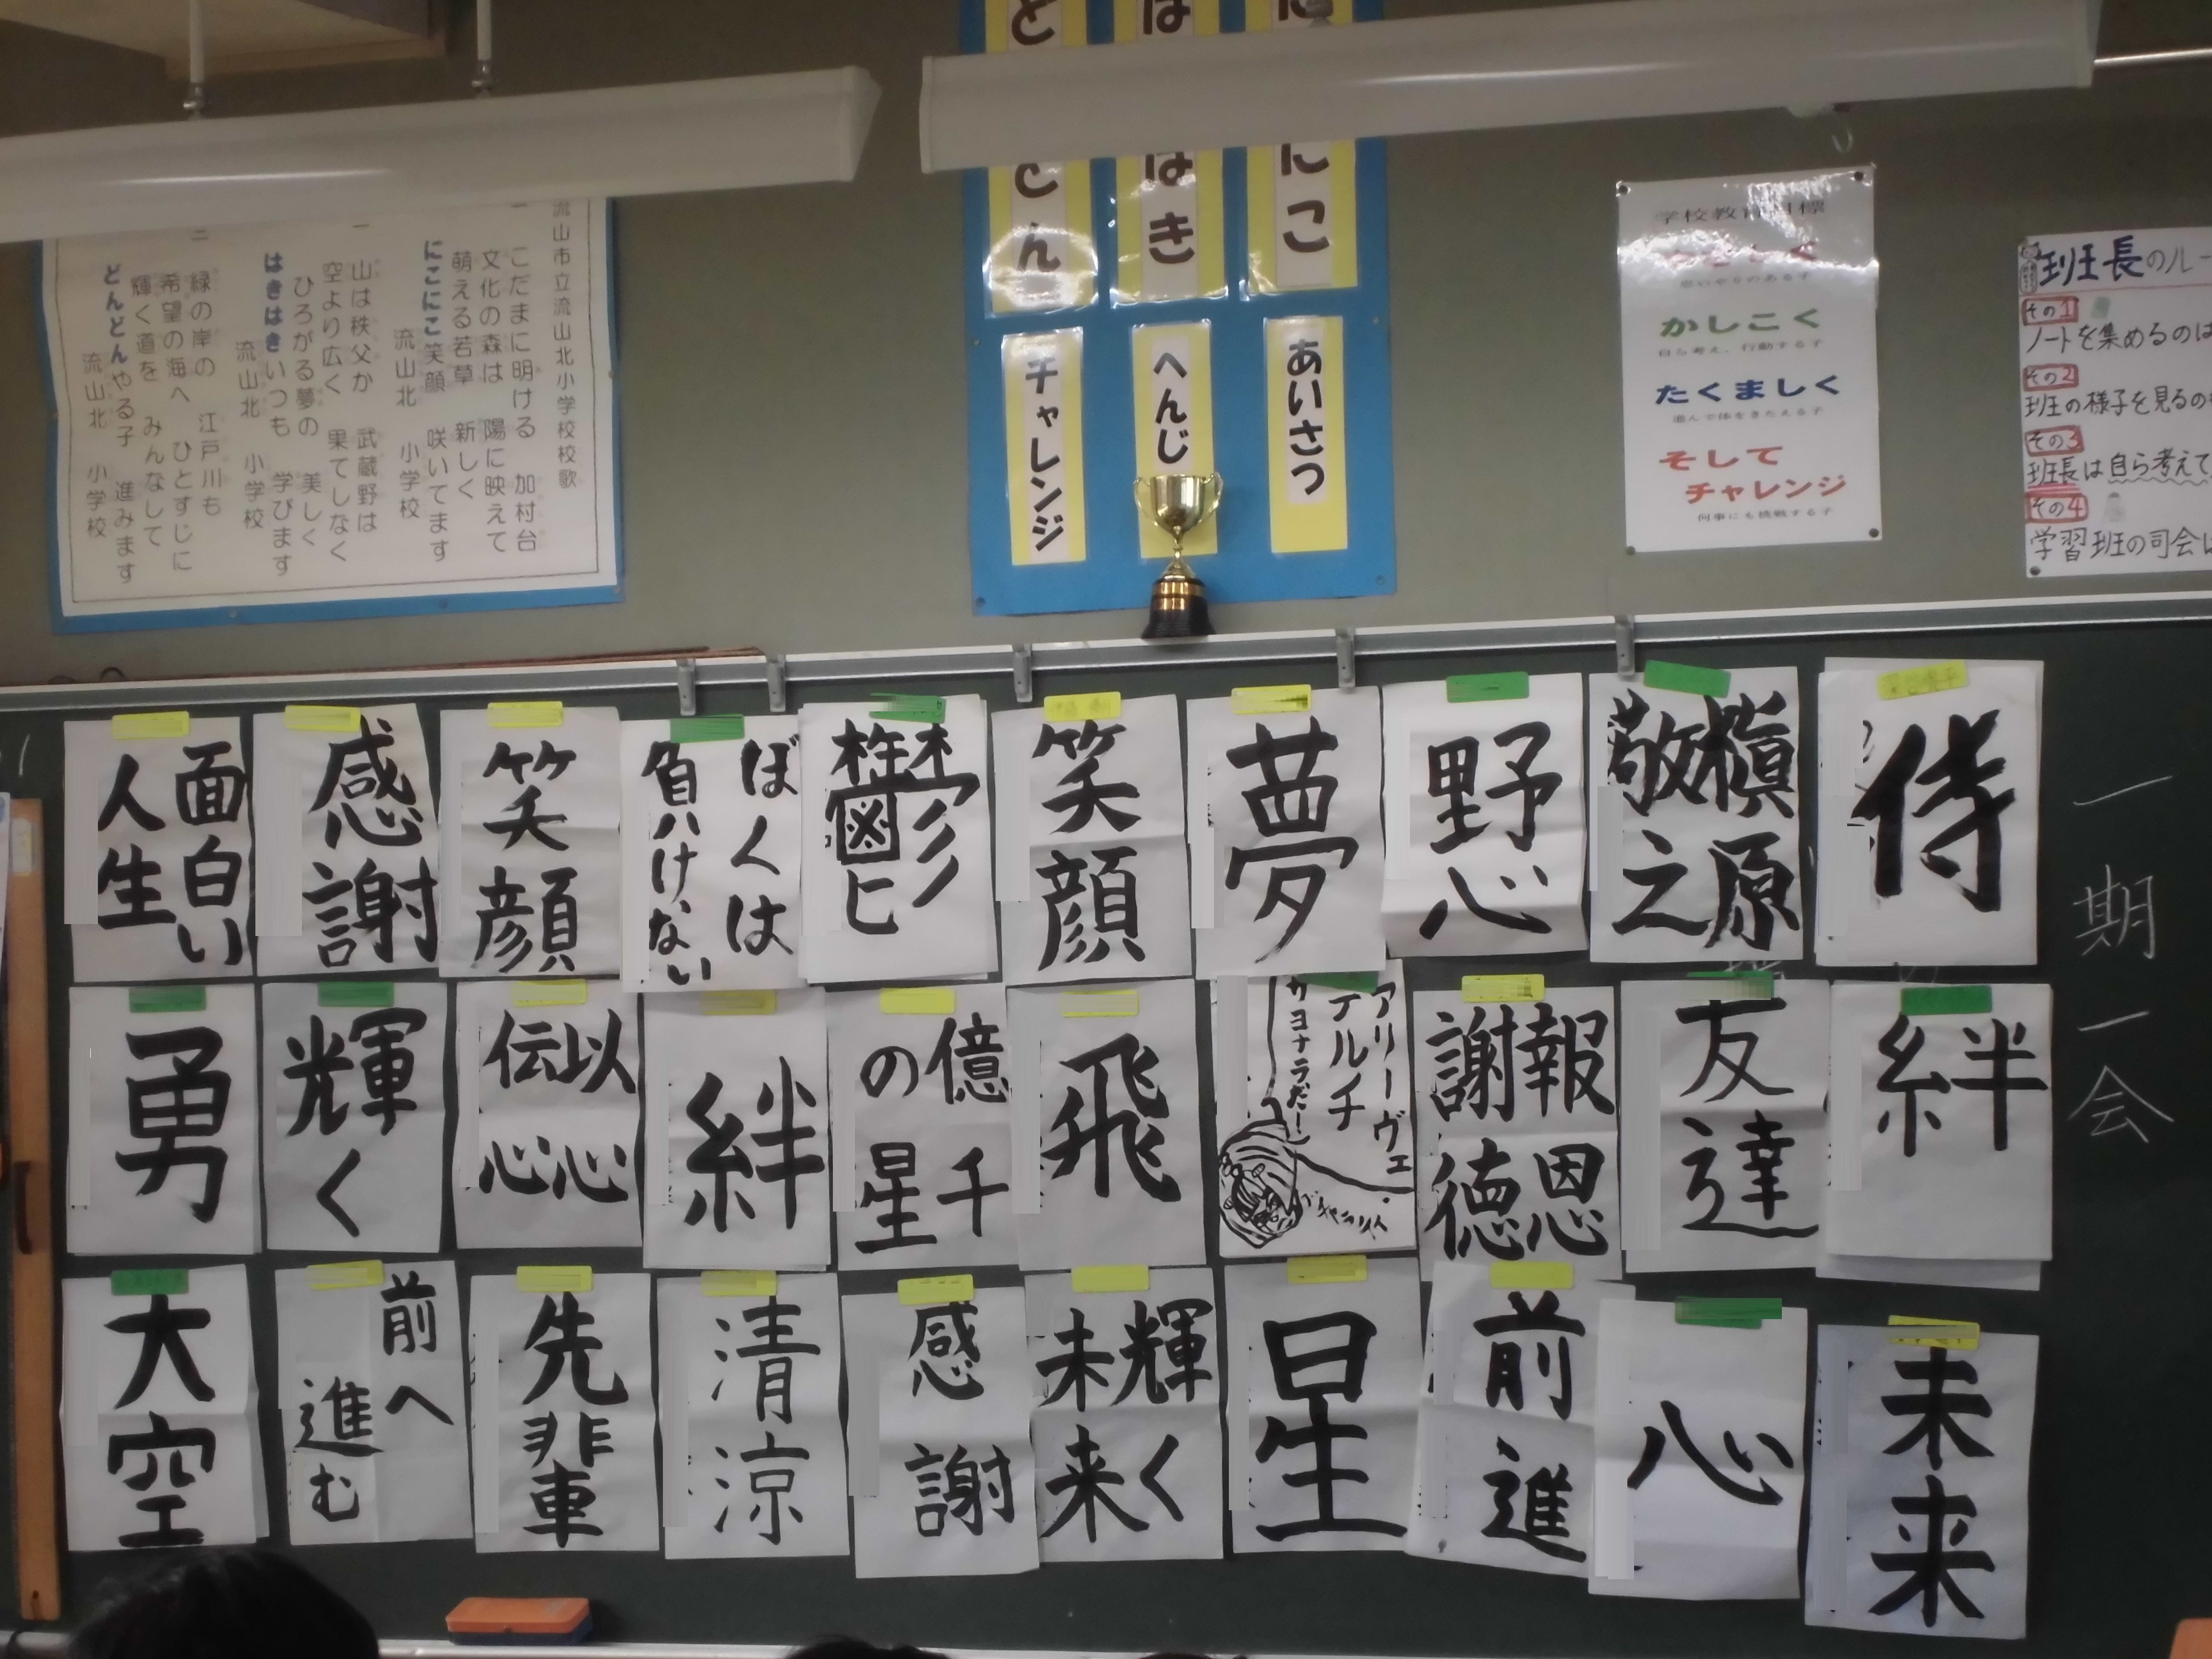 流山市立流山北小学校校歌
一
こだまに明ける 加村台
文化の森は 陽に映えて
萌える若草 新しく
にこにこ笑顔 咲いてます
流山北 小学校
二
山は秩父か 武蔵野は
空より広く 果てしなく
ひろがる夢の 美しく
はきはきいつも 学びます
流山北 小学校
三
緑の岸の 江戸川も
希望の海へ ひとすじに
輝く道を みんなして
どんどんやる子 進みます
流山北 小学校
にこ
あいさつ
はき
へんじ
どん
チャレンジ
学校教育目標
思いやりのある子
かしこく
自ら考え、行動する子
たくましく
進んで体をきたえる子
そして
チャレンジ
何事にも挑戦する子
班長のルー
その1
ノートを集めるのは
その2
班の様子を見るの
その3
班長は自ら考えて
その4
学習班の司会は
一期一会
侍
槙原
敬之
野心
夢
笑顔
鬱
ぼくは
負けない
笑顔
感謝
面白い
人生
絆
友達
報恩
謝徳
アリーヴェ
デルチ
サヨナラだー!
飛
億千
の星
絆
以心
伝心
輝く
勇
未来
心
前進
星
輝く
未来
感謝
清涼
先輩
前へ
進む
大空